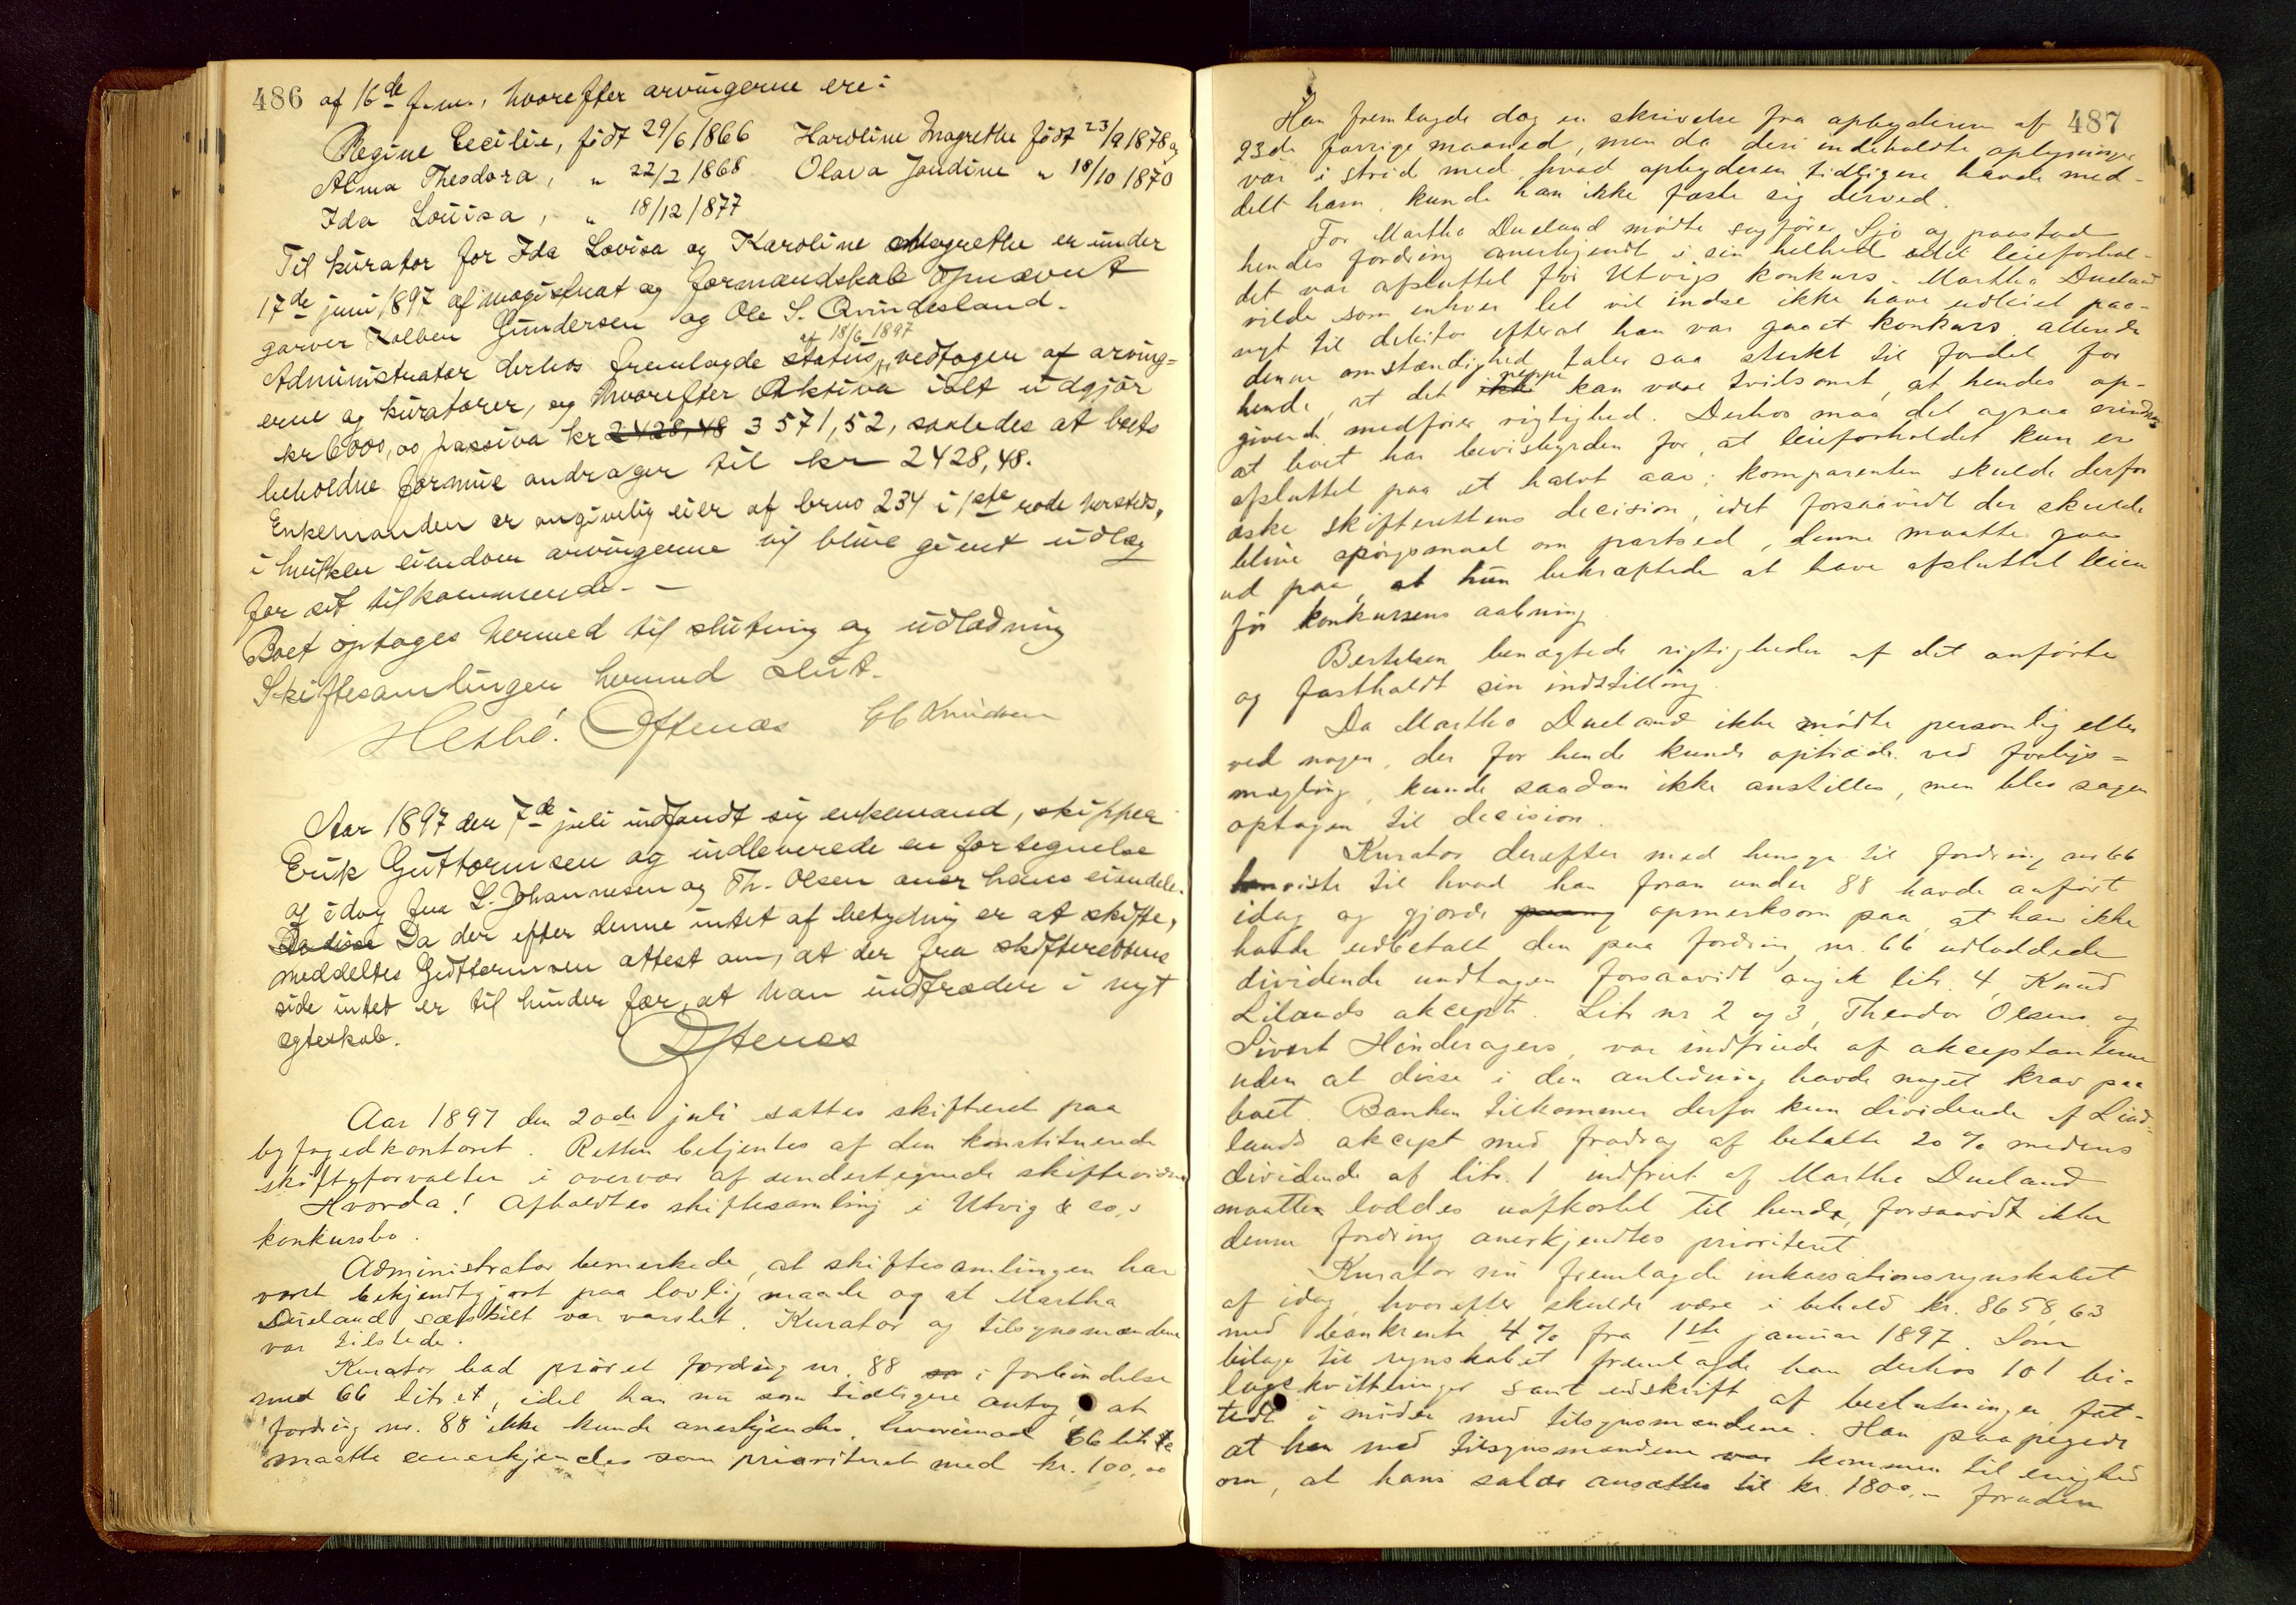 486 af 16de f. m., hvorefter arvingerne ere:
Regine Cecilie, født 29/6 1866 Karoline Magrethe født 23/9 1878 og
Alma Theodora, " 22/2 1868 Olava Jondine " 18/10 1870
Ida Louisa, " 18/12 1877
Til kurator for Ida Lovisa og Karoline Magrethe er under
17de juni 1897 af magistrat og formandskab opnævnt
garver Kolben Gundersen og Ole S. Qvindesland.
Administrator derhos fremlagde status af 18/6 1897, vedtagen af arving=
erne og kuratorer, og hvorefter Aktiva ialt udgjør
kr 6000,00 passiva kr 2428,48 3571,52, saaledes at boets
beholdne formue andrager til kr 2428,48.
Enkemanden er angivelig eier af brno 234 i 1ste rode horsteds,
i hvilken eiendom arvingerne vil blive givet udlæg
for sit tilkommende. —
Boet optages hermed til slutning og udlodning
Skiftesamlingen hermed slut.
Hesbé. Oftenæs Knudsen
Aar 1897 den 7de juli indfandt sig enkemand, skipper
Erik Guttormsen og indleverede en fortegnelse
af idag fra L. Johannesen og Th. Olsen over hans eiendele.
Da disse Da der efter denne intet af betydning er at skifte,
meddeltes Guttormsen attest om, at der fra skifterettens
side intet er til hinder for, at han indtræder i nyt
egteskab.
Oftenæs
Aar 1897 den 20de juli sattes skifteret paa
byfogedkontoret. Retten betjentes af den konstituerede
skifteforvalter i overvær af undertegnede skiftevidner
Hvorda! Afholdtes skiftesamling i Utvig & co,s
konkursbo.
Administrator bemerkede, at skiftesamlingen har
været bekjendtgjort paa lovlig maade og at Martha
Dueland særskilt var varslet. Kurator og tilsynsmændene
var tilstede.
Kurator bad prøvet fordring nr. 88 i forbindelse
med 66 litr et, idet han nu som tidligere antog, at
fordring nr. 88 ikke kunde anerkjendes, hvorimod 66 litr
maatte anerkjendes som prioriteret med kr. 100,00
487
Han fremlagde dog en skrivelse fra opbyderen af
23de forrige maaned, men da deri indeholdte oplysninger
var i strid med, hvad opbyderen tidligere havde med-
delt ham, kunde han ikke fæste sig derved.
For Martha Dueland mødte sagfører Sjø og paastod
hendes fordring anerkjendt i sin helhed idet leieforhol-
det var afsluttet før Utvigs konkurs. Martha Dueland
vilde som enhver let vil indse ikke have udleiet paa-
nyt til debitor efterat han var gaaet konkurs. allerede
denne omstændighed taler saa sterkt til fordel for
hende, at det ikke neppe kan være tvilsomt, at hendes op-
givende medfører rigtighed. Derhos maa det ogsaa erindres
at boet har bevisbyrden for, at leieforholdet kun er
afsluttet paa et halvt aar; komparenten skulde derfor
æske skifterettens decision, idet forsaavidt der skulde
blive spørgsmaal om partsed, denne maatte gaa
ud paa, at hun bekræftede at have afsluttet leien
før konkursens aabning
Bertelsen benægtede rigtigheden af det anførte
og fastholdt sin indstilling.
Da Martha Dueland ikke mødte personlig eller
ved nogen, der for hende kunde optræde ved forligs=
mægling, kunde saadan ikke anstilles, men blev sagen
optagen til decision.
Kurator derefter med hensyn til fordring nr 66
henviste til hvad han foran under 88 havde anført
idag og gjorde opmerksom paa, at han ikke
havde udbetalt den paa fordring nr. 66 udloddede
dividende undtagen forsaavidt angik litr. 4, Knud
Lilands akcept. Litr nr 2 og 3, Theodor Olsens og
Sivert Hinderagers, var indfriede af akceptanterne
uden at disse i den anledning havde noget krav paa
boet. Banken tilkommer derfor kun dividende af Lind-
lands akcept med fradrag af betalte 20 % medens
dividende af litr. 1 indfriet af Martha Dueland
maatte loddes uafkortet til hende, forsaavidt ikke
denne fordring anerkjendtes prioriteret
Kurator nu fremlagde inkassationsregnskabet
af idag, hvorefter skulde være i behold kr. 8658,63
med bankrente 4% fra 1ste januar 1897. Som
bilage til regnskabet fremlagde han derhos 101 bi-
lagskvitteringer samt udskrift af beslutninger, fat-
tede i møder med tilsynsmændene. Han paapegede
at han med tilsynsmændene var kommen til enighed
om, at hans salær ansættes til kr. 1800,— foruden